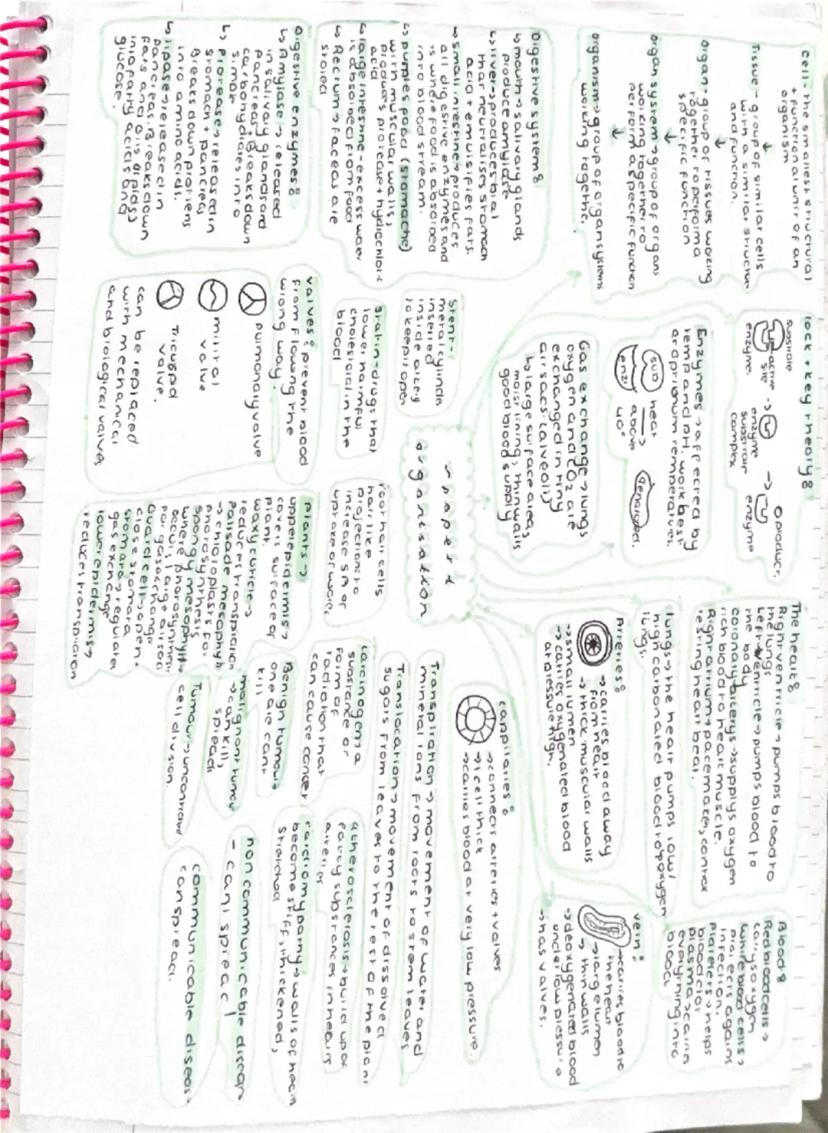 cell - the smallest structural
+ functional unit of an
organism
↓
Tissue - group of similar cells
with a similar structure
and function.
↓
Organ → group of tissues woking
together to perform a
specific function
↓
Organ system → group of organs
working together to
perform a specific function
↓
organism → group of organ systems
working together.
lock + key theory:
substrate
active
site
enzyme
→
enzyme
substrate
complex
→
product.
enzyme
Enzymes → affected by
temp and pH, work best
at optimum temperatures.
sub
enz
heat
→
above
40°
denatured.
The heart:
Right ventricle → pumps blood to
the lungs
Left ventricle → pumps blood to
the body
coronary arterys → supplys oxygen
rich blood to heart muscle.
Right atrium → pacemaker, control
resting heart beat.
lungs → the heart pumps low/
high carbonated blood to oxygen
lungs.
Blood:
Red blood cells →
carrys oxygen
white blood cells →
protects agains
infection.
platelets → helps
blood clot
plasma → carries
everything in to
blood
Digestive system:
→ mouth → salivary glands
produce amylase
→ liver → produces bial
that neutralises stomach
acid + emulsifies fats.
→ small intestine → produces
all digestive enzymes and
is where food is absorbed
into blood stream.
→ pummles food (stomache)
with muscular walls,
produces protease + hydrochloric
acid
→ large intestine - excess water
is absorbed from food
→ Rectum → faeces are
stored
Gas exchange → lungs
oxygen and CO2 are
exchanged in tiny
air sacs (alveoli)
↳ large surface area,
moist lining, thin walls
good blood supply
Arteries:
→ carries blood away
from heart
→ thick muscular walls
→ small lumen
→ carries oxygenated blood
at pressure high.
vein:
→ carries blood to
the heart
→ large lumen
→ thin walls
→ deoxygenated blood
under low pressure
→ has valves.
cappilaries:
→ connects arteries + valves
→ 1 cell thick
→ carries blood at very low pressure.
paper 1
organisation
Stent -
metal cylinder
inserted
inside artery
to keep it open
Statin - drugs that
lower harmful
cholesterol in the
blood
Root hair cells
hair like
projection to
increase SA of
uptake of water
Transpiration → movement of water and
mineral ions from roots to stem leaves
Translocation → movement of dissolved
sugars from leaves to the rest of the plant
Digestive enzymes:
↳ Amylase → released
in salivary glands and
pancreas. Breaks down
carbohydrates into
simar
↳ Protease → released in
stomach + pancreas
Breaks down protiens
into amino acids.
↳ Lipase → released in
pancreas. Breaks down
fats and oils (lipids)
into fatty acids and
glucose.
valves: prevent blood
from flowing the
wrong way.
Pulmonary valve
mitral
valve
Tricuspid
valve.
can be replaced
with mechanical
and biological valves
Plants →
upper epidermis →
covers surface of
plant
waxy cuticle →
reduces transpiration
Palisade mesophyll
→ chloroplasts for
photosynthesis
spongy mesophyll →
where photosynthesis
occurs, large air space
for gas exchange
Guard cell → open +
close stomata
stomata → regulates
gas exchange
lower epidermis →
reduces transpiration
carcinogens a
substance or
form of
radiation that
can cause cancer
Benign tumour
one are cant
kill
malignant tumour
→ can kill,
spreads
Tumour → uncontrolled
cell division
atherosclerosis → build up of
fatty substances in hearts
arteries
cardiomyopathy → walls of heart
become stiff, thickened,
stretched
non communicable disease
- cant spread!
communicable disease
can spread.